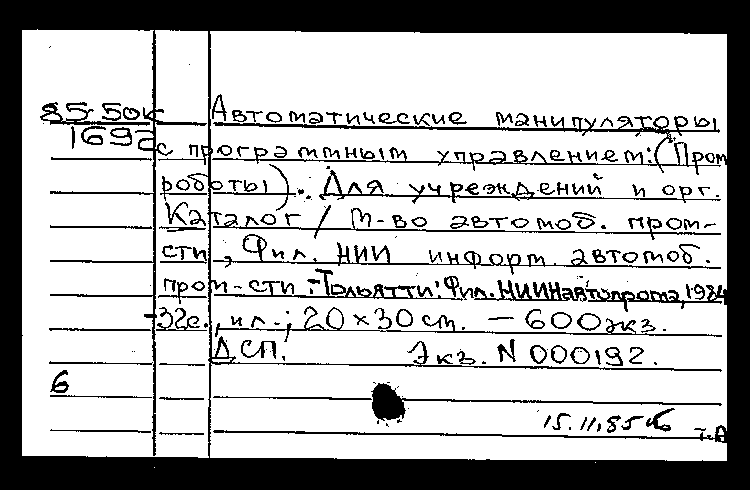 85-50к Автоматические манипуляторы
1692с с программным управлением: (Пром
роботы). Для учреждений и орг.
Каталог / М-во автомоб. пром-
сти, Фил. НИИ информ. автомоб.
пром-сти. - Тольятти: Фил. НИИНавтопрома, 1984
-32с., ил.; 20×30 см. - 600 экз.
ДСП. Экз. N 000192.
6
15.11.85